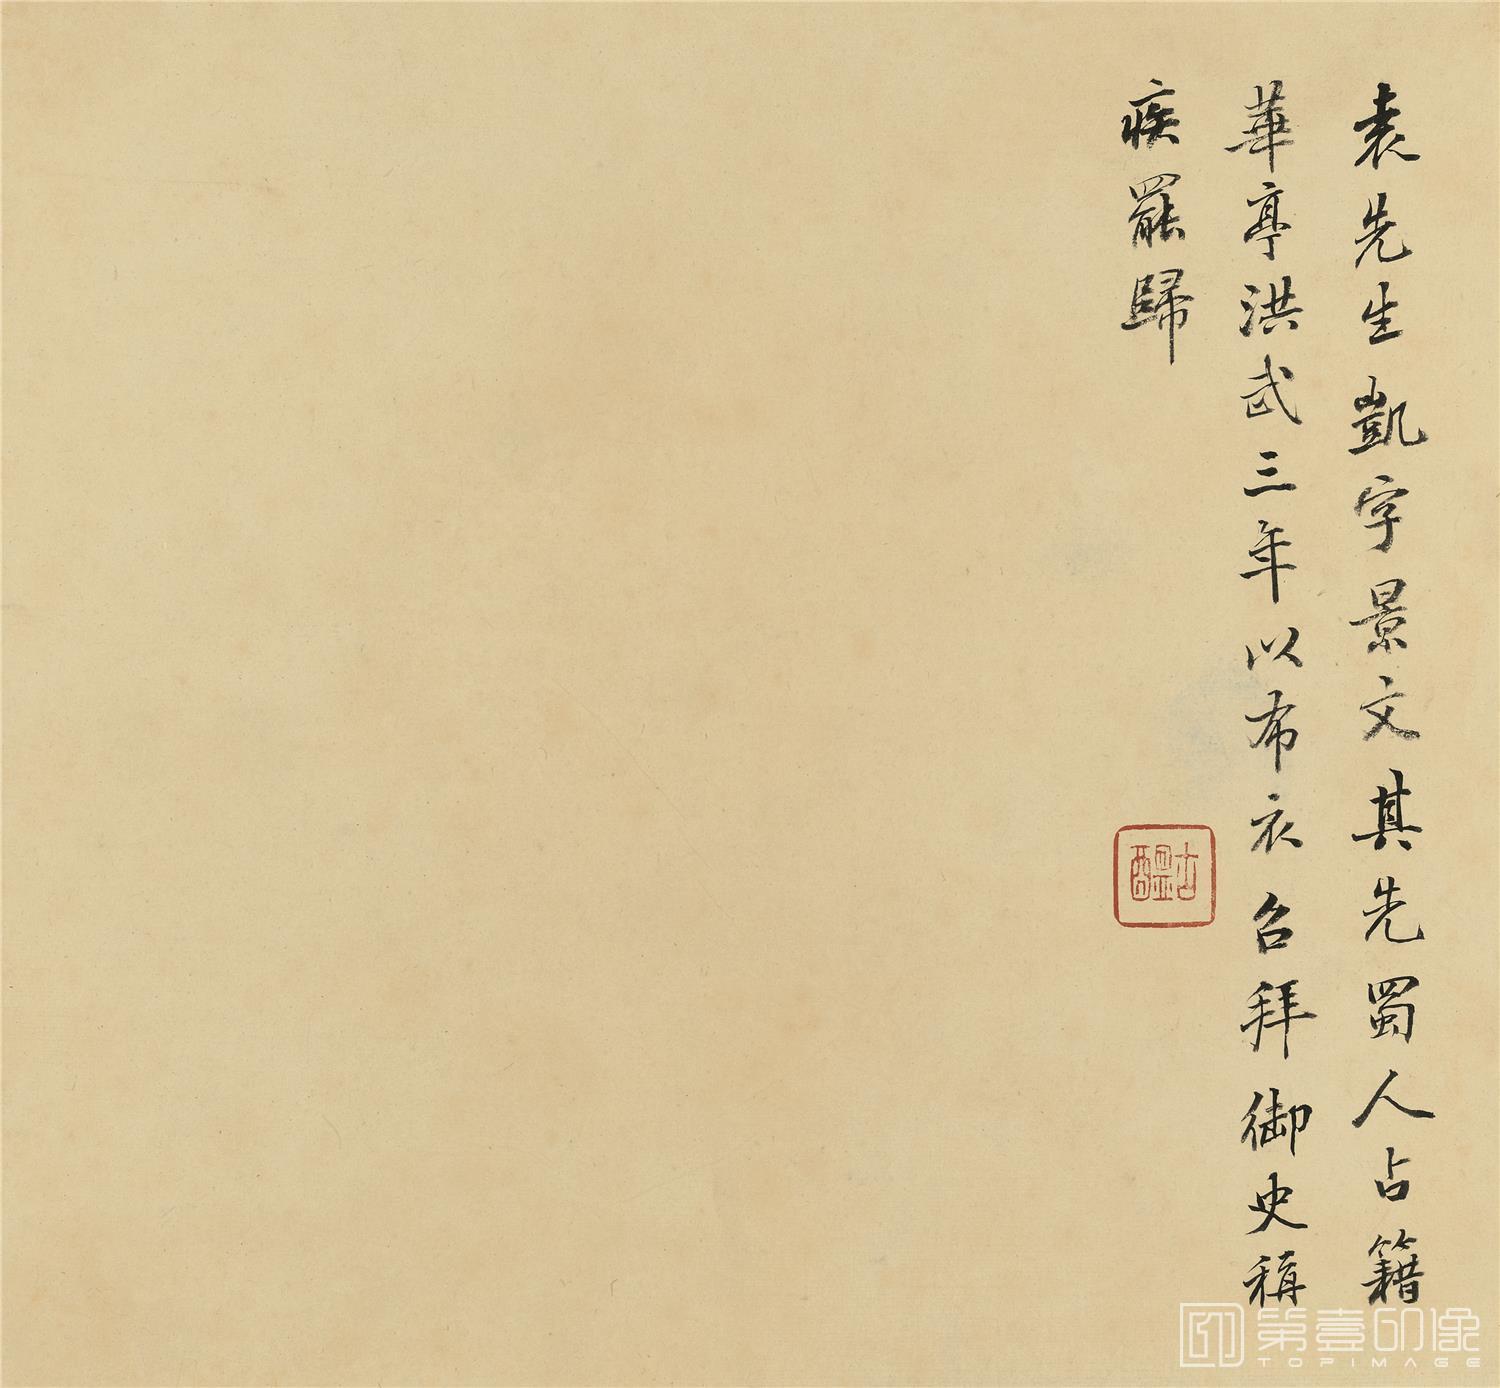 袁先生凱字景文其先蜀人占籍
華亭洪武三年以布衣召拜御史稱
疾罷歸
第壹印像
TOPIMAGE